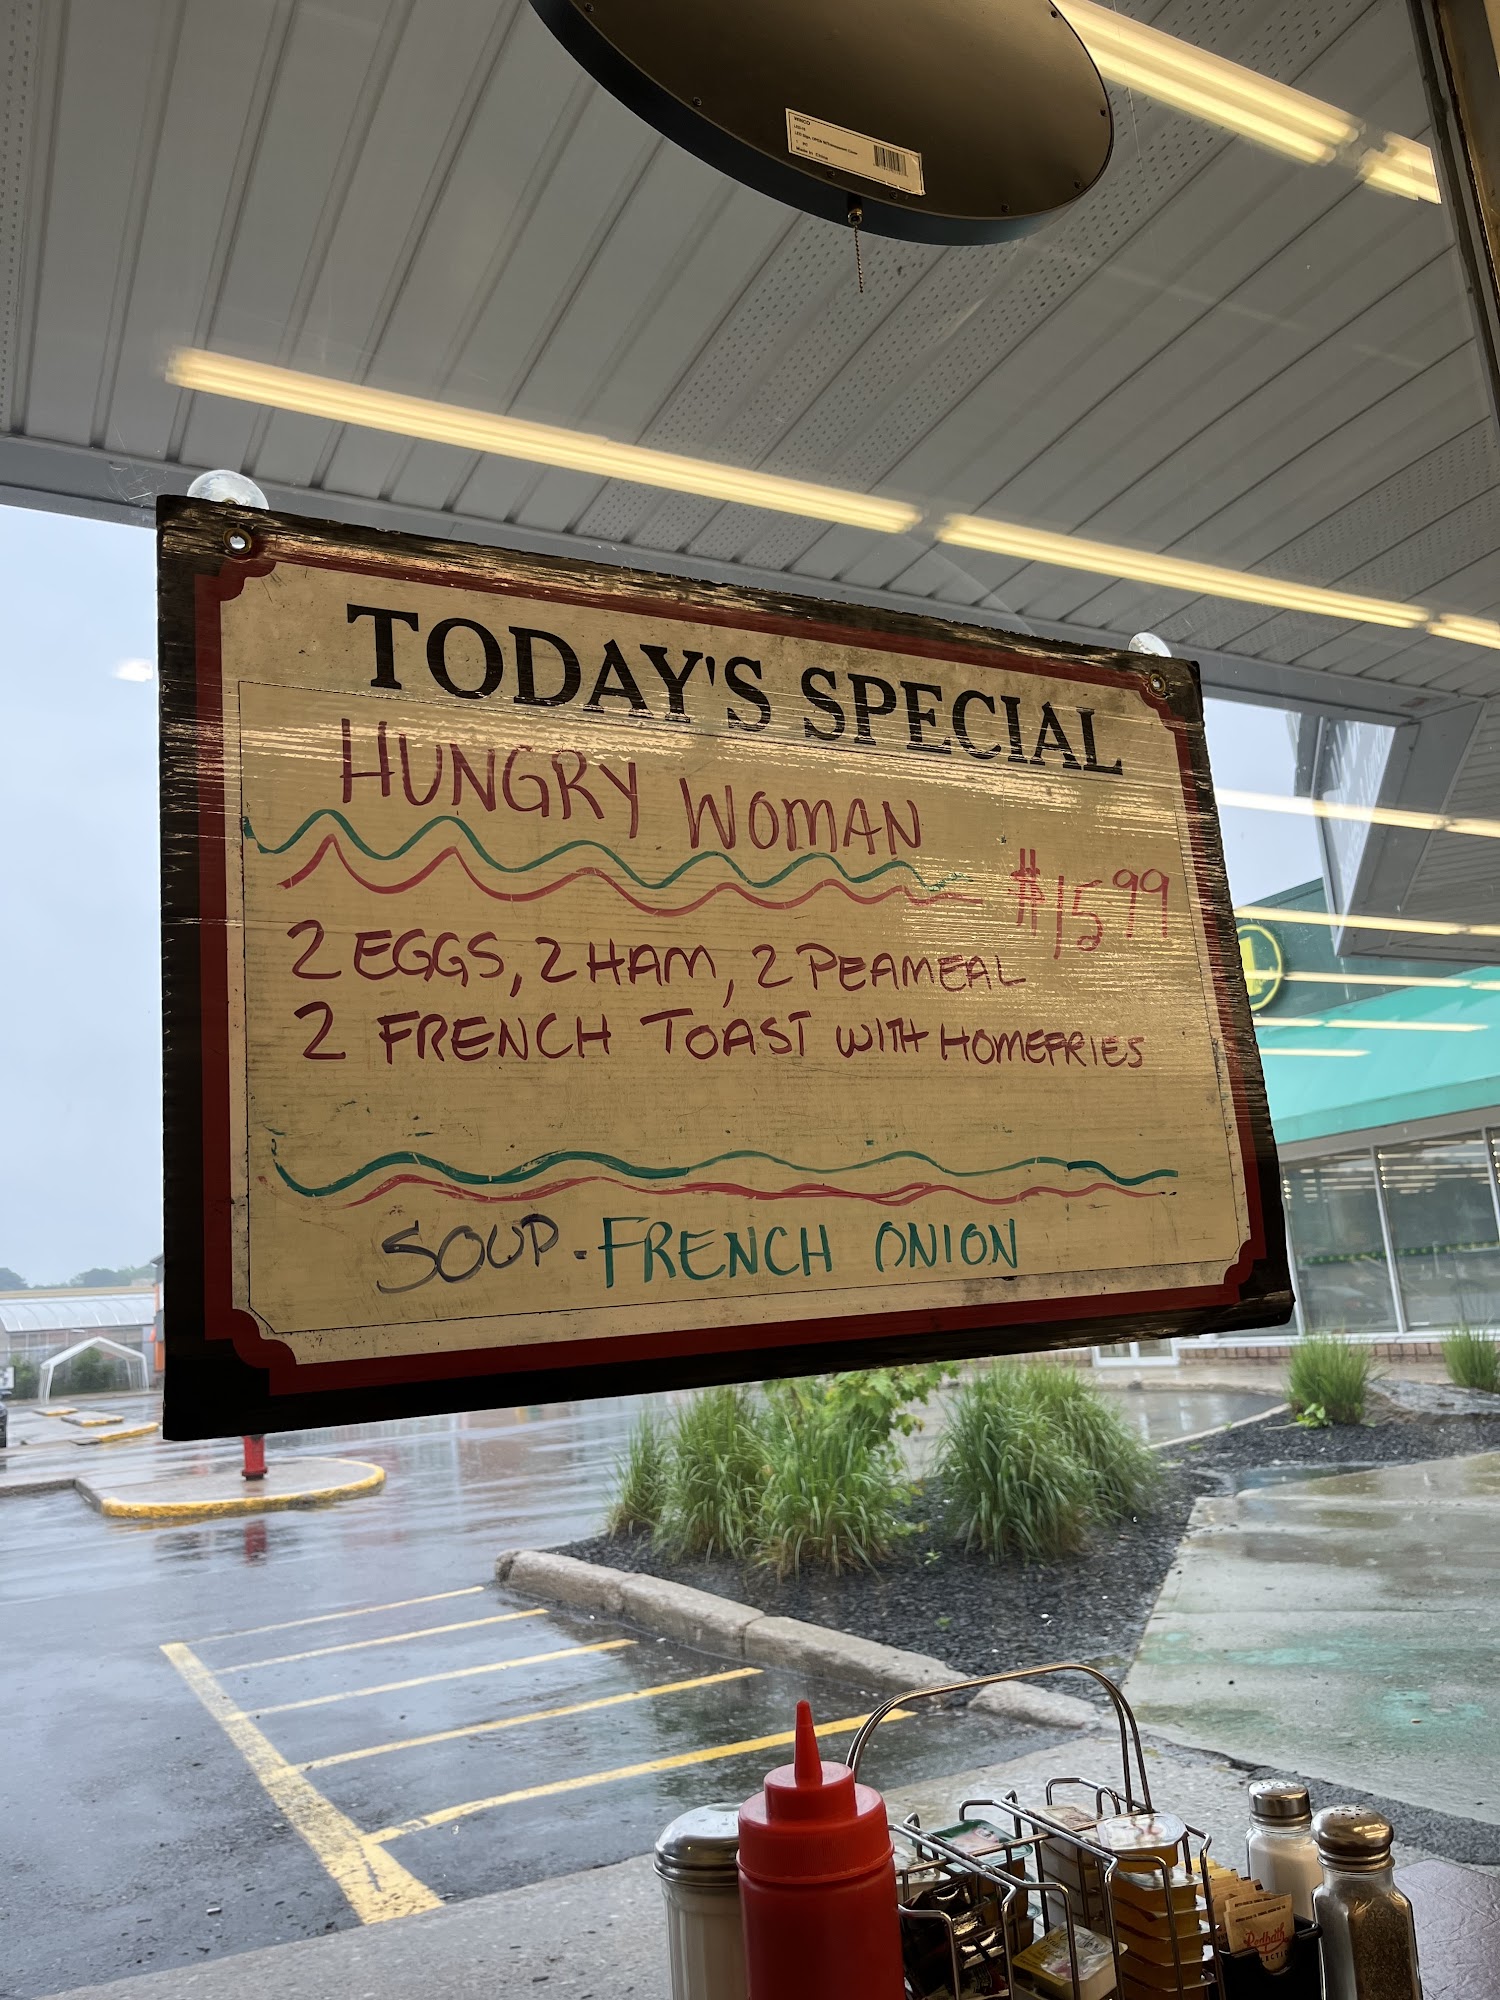 TODAY'S SPECIAL
HUNGRY WOMAN
$15.99
2 EGGS, 2 HAM, 2 PEAMEAL
2 FRENCH TOAST WITH HOMEFRIES
SOUP - FRENCH ONION
Redpath